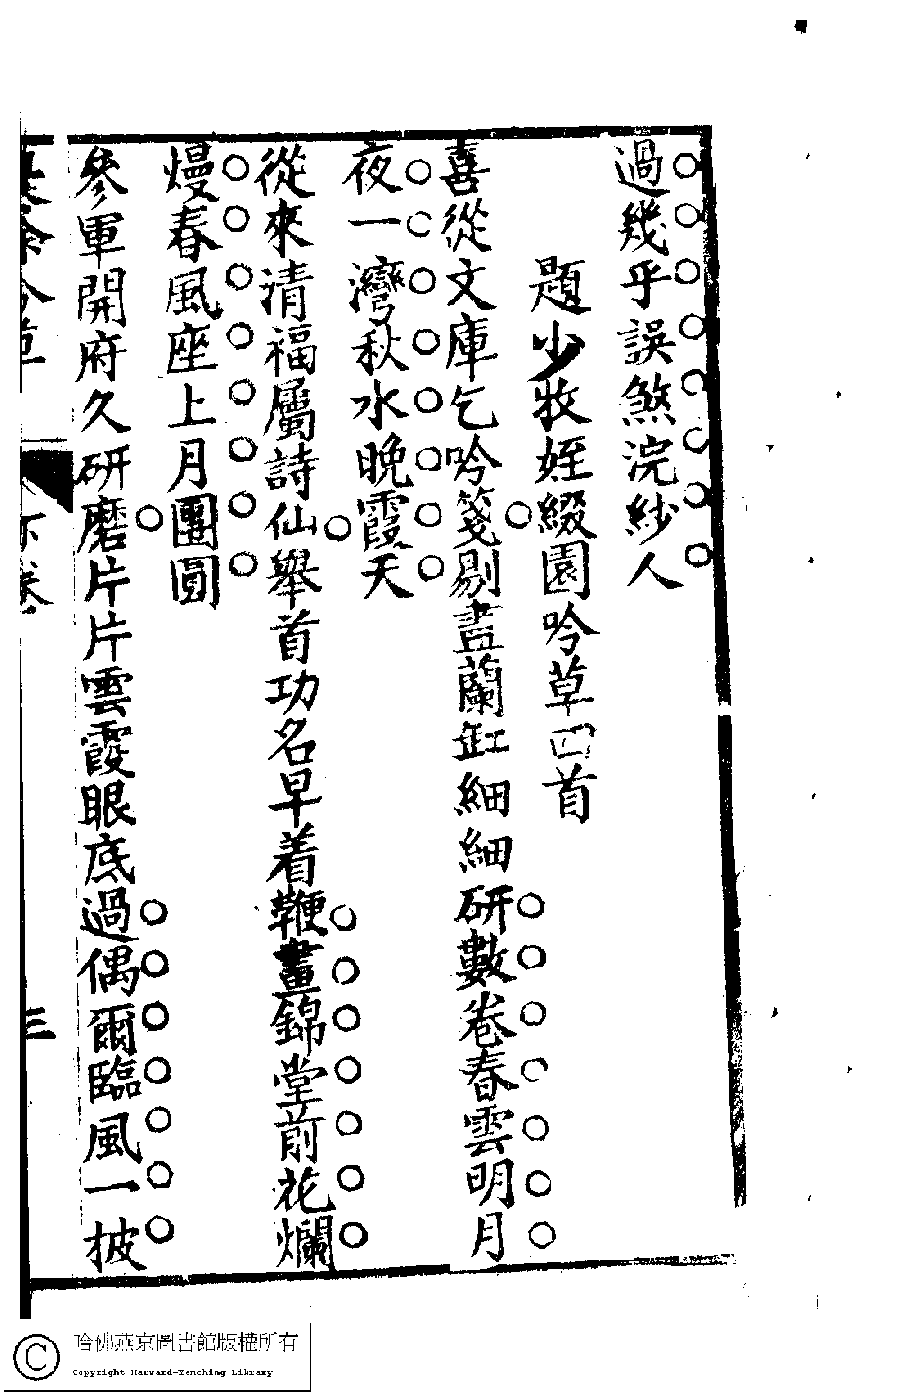 過幾乎誤煞浣紗人
題少牧姪綴園吟草四首
喜從文庫乞吟箋剔盡蘭缸細細研數卷春雲明月
夜一灣秋水晚霞天
從來清福屬詩仙舉首功名早着鞭晝錦堂前花爛
熳春風座上月團圓
參軍開府久研磨片片雲霞眼底過偶爾臨風一披
三
哈佛燕京圖書館版權所有
Copyright Harvard-Yenching Library